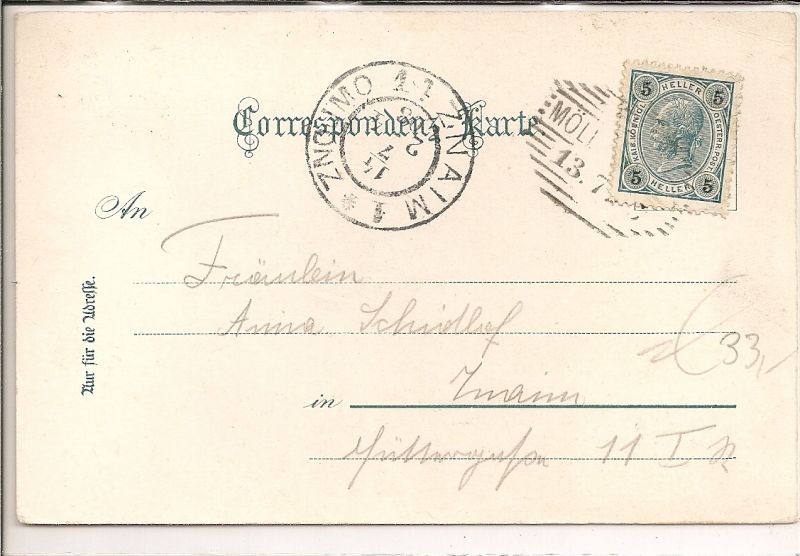 Correspondenz-Karte.
ZNOJMO 1-1 * ZNAIM 1
14 7
13.7
5 HELLER 5
KAIS. KÖNIGL. OESTERR. POST
5 HELLER 5
An
Nur für die Adresse.
Fräulein
Anna Schidlof
in Znaim
11 I
33,-